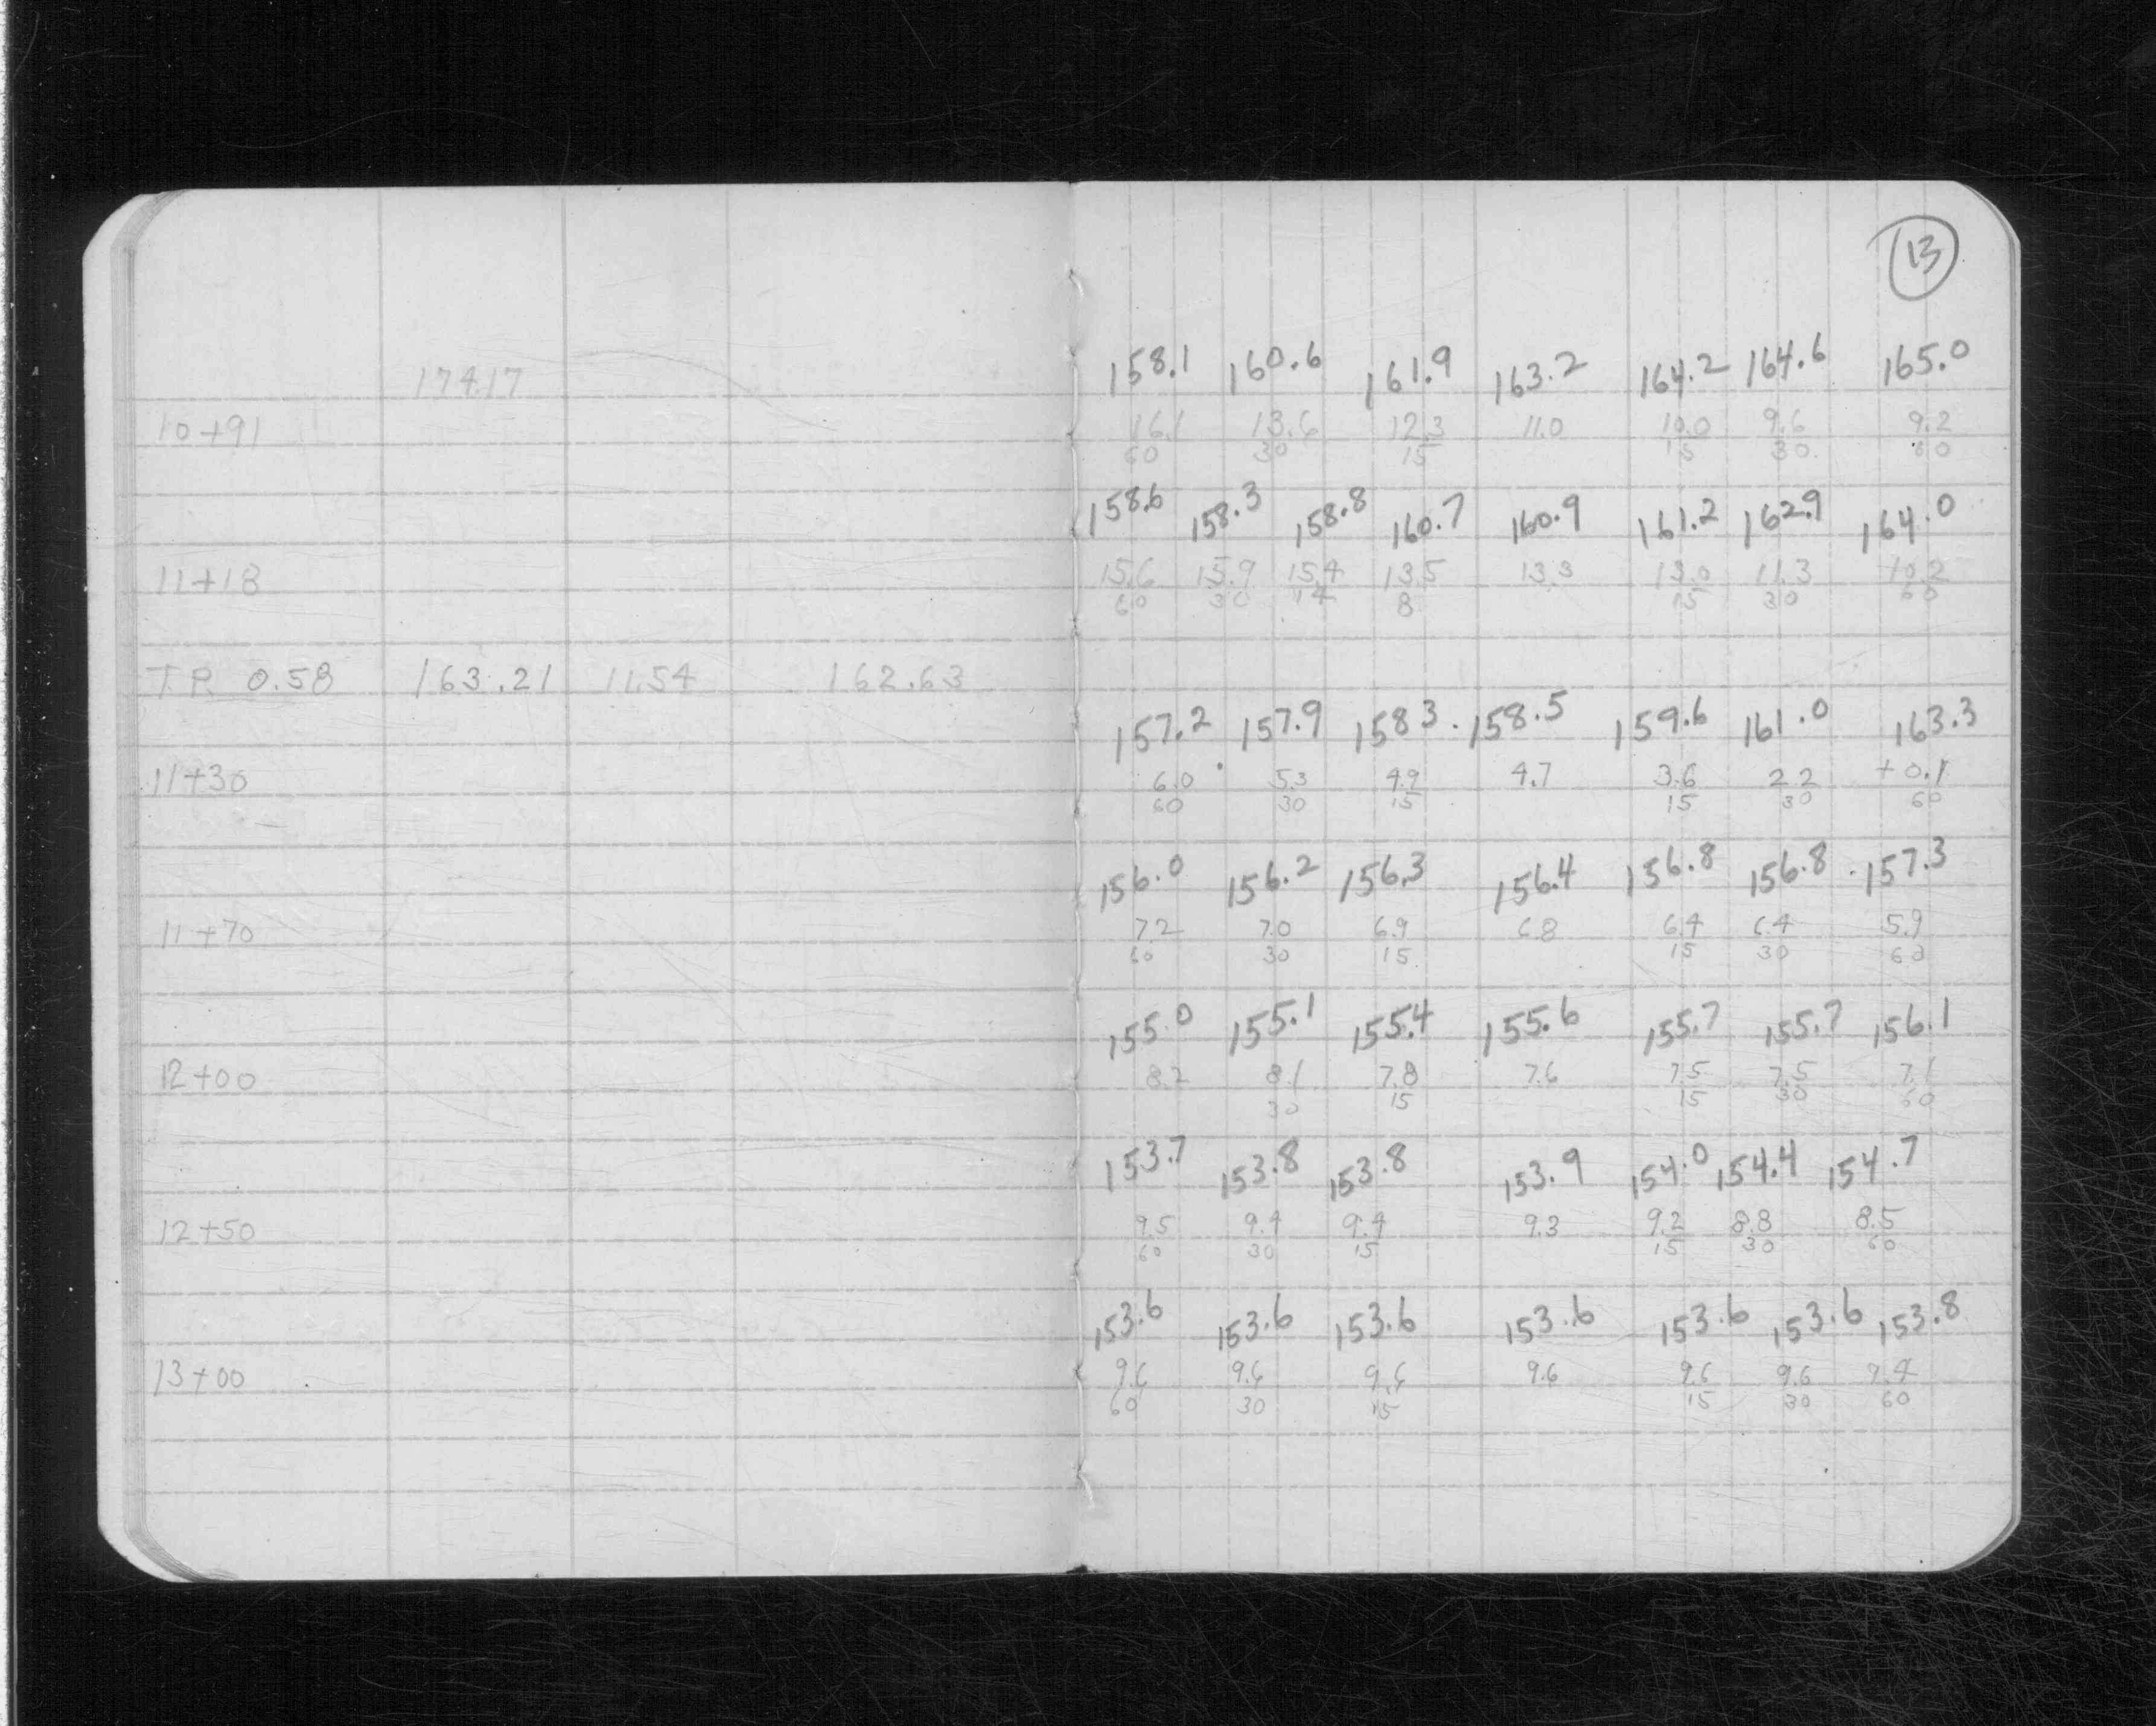 13
158.1 160.6 161.9 163.2 164.2 164.6 165.0
174.17
10+91 16.1 13.6 12.3 11.0 10.0 9.6 9.2
60 30 15 15 30 60
158.6 158.3 158.8 160.7 160.9 161.2 162.9 164.0
11+18 15.6 15.9 15.4 13.5 13.3 13.0 11.3 10.2
60 30 14 8 15 30 60
T.P. 0.58 163.21 11.54 162.63
157.2 157.9 158 3 158.5 159.6 161.0 163.3
11+30 6.0 5.3 4.9 4.7 3.6 2.2 +0.1
60 30 15 15 30 60
156.0 156.2 156.3 156.4 156.8 156.8 157.3
11+70 7.2 7.0 6.9 6.8 6.4 6.4 5.9
60 30 15 15 30 60
155.0 155.1 155.4 155.6 155.7 155.7 156.1
12+00 8.2 8.1 7.8 7.6 7.5 7.5 7.1
30 15 15 30 60
153.7 153.8 153.8 153.9 154.0 154.4 154.7
12+50 9.5 9.4 9.4 9.3 9.2 8.8 8.5
60 30 15 15 30 60
153.6 153.6 153.6 153.6 153.6 153.6 153.8
13+00 9.6 9.6 9.6 9.6 9.6 9.6 9.4
60 30 15 15 30 60